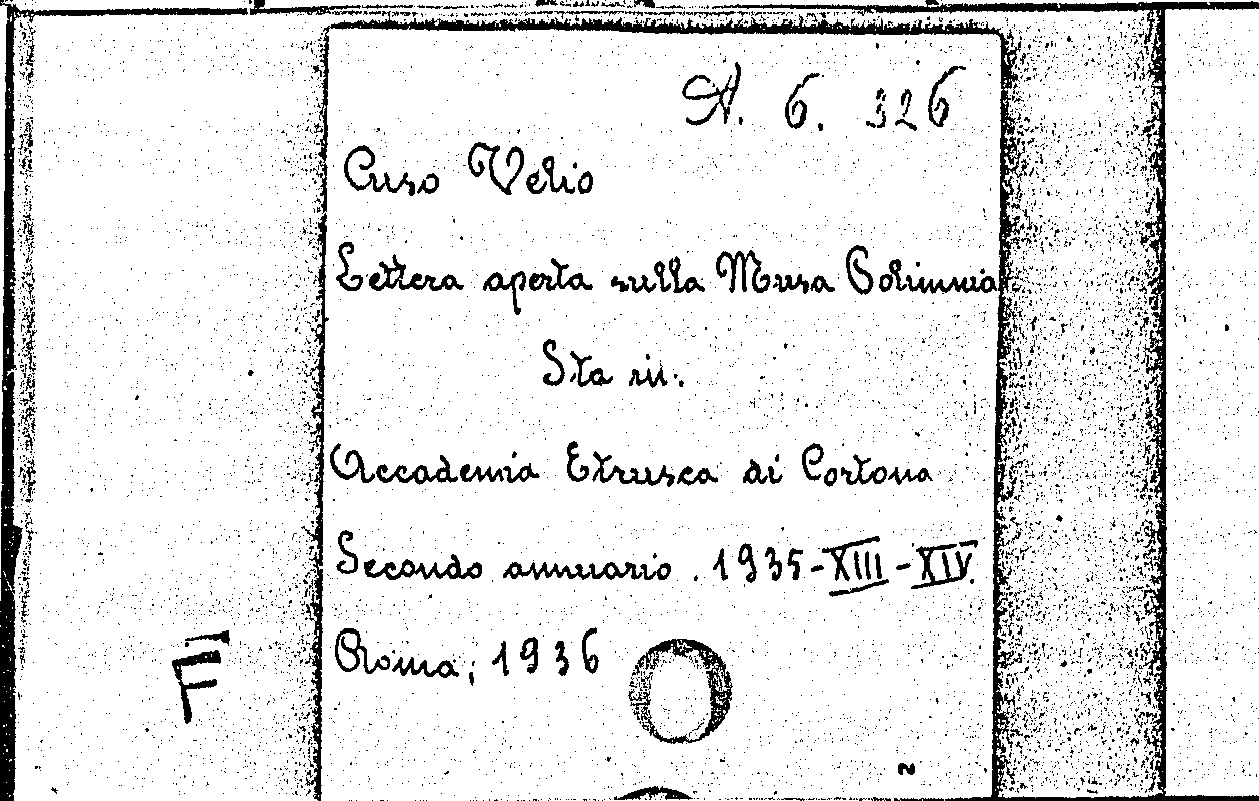 A. 6. 326
Cuso Velio
Lettera aperta sulla Musa Polimnia
Sta in:
Accademia Etrusca di Cortona
Secondo annuario. 1935-XIII-XIV.
Roma, 1936
F